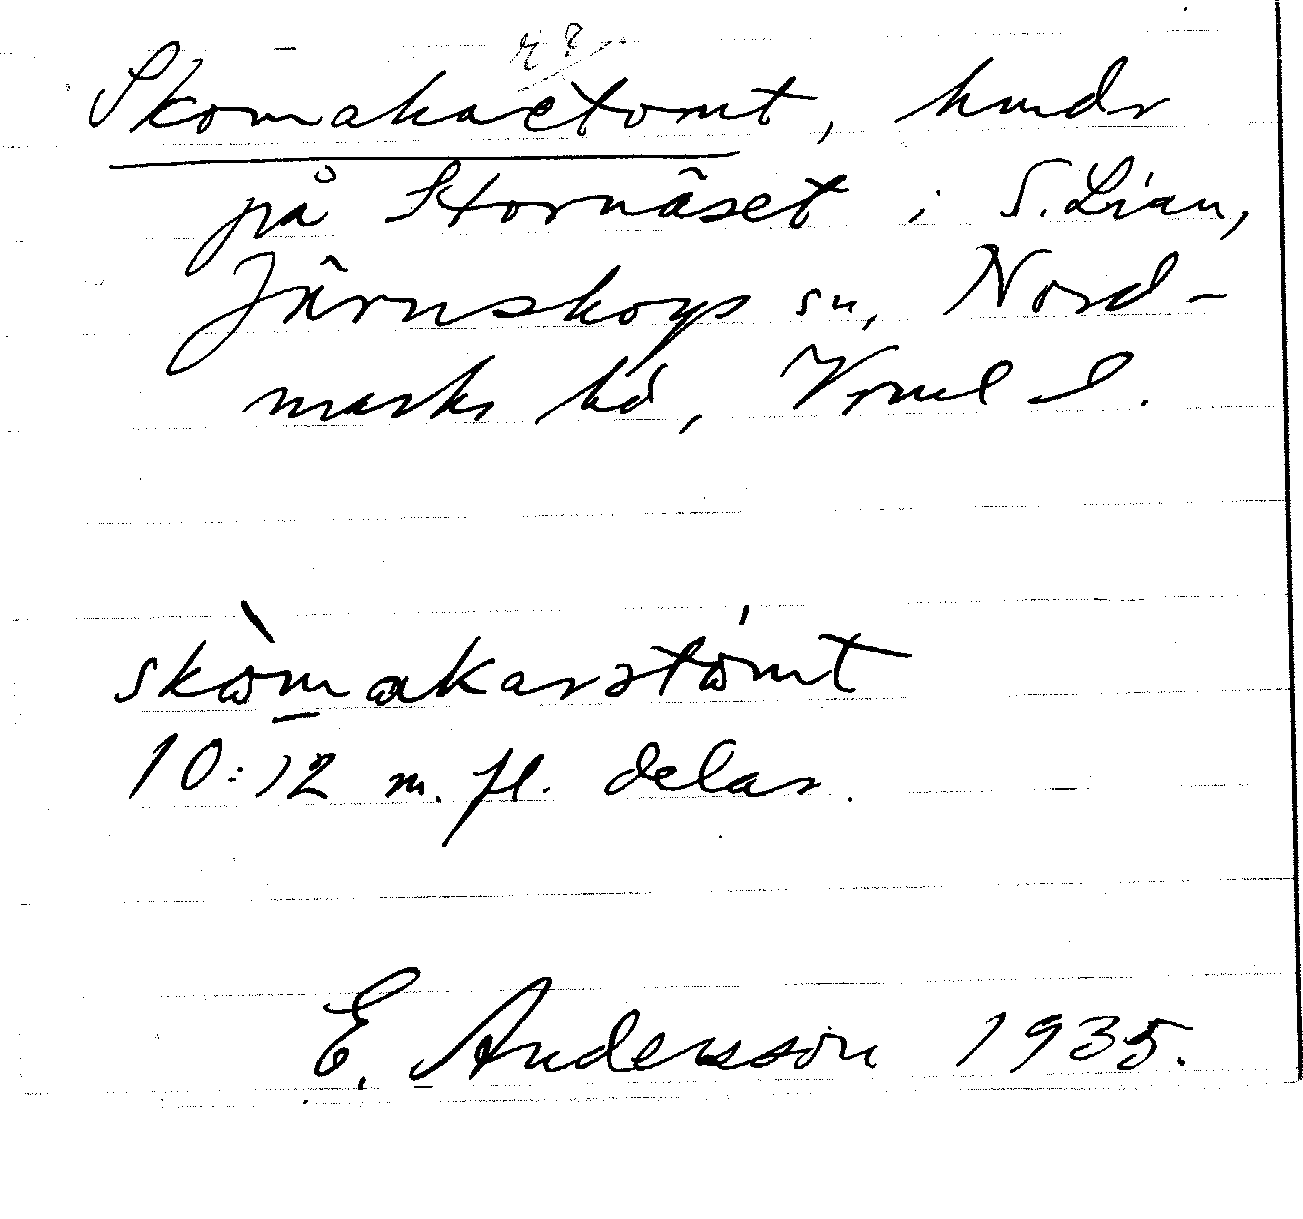 r?
Skomakaretomt, hmdr
på Stornäset i S. Lian,
Järnskogs sn, Nord-
marks hd, Vrml l.
skòmakarstómt
10:12 m. fl. delar.
E. Andersson 1935.